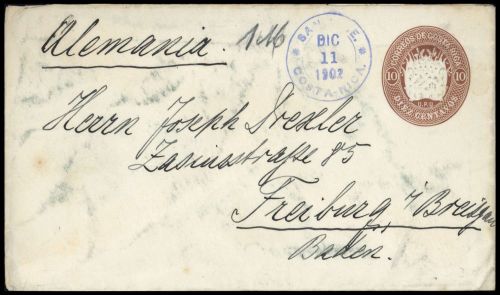 Alemania.
SAN JOSE.
DIC
11
1902
COSTA-RICA.
CORREOS DE COSTA RICA
10 10
U.P.U.
DIEZ CENTAVOS
Herrn Joseph Drexler
Zasiusstraße 85
Freiburg i/Breisgau
Baden.